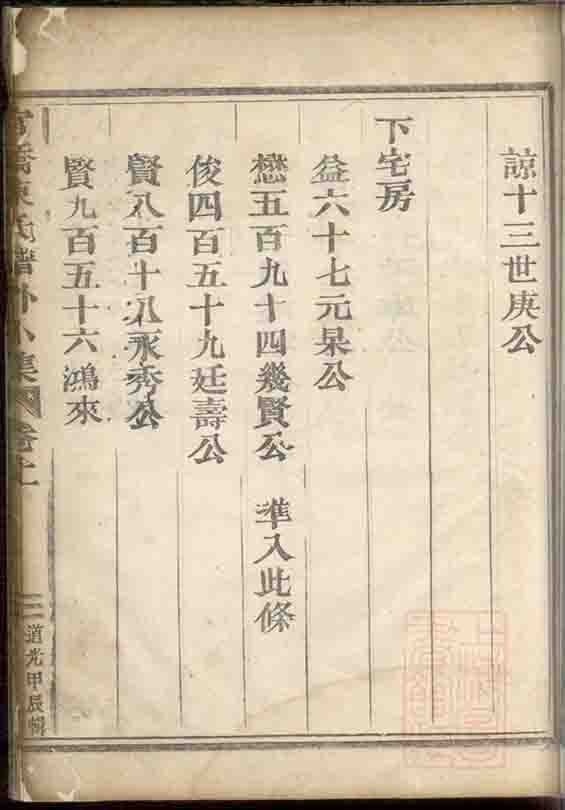 諒十三世庚公
下宅房
益六十七元杲公
懋五百九十四幾賢公　準入此條
俊四百五十九廷壽公
賢八百十八永秀公
賢九百五十六鴻來
橋 氏譜外小集 卷七
二
道光甲辰輯